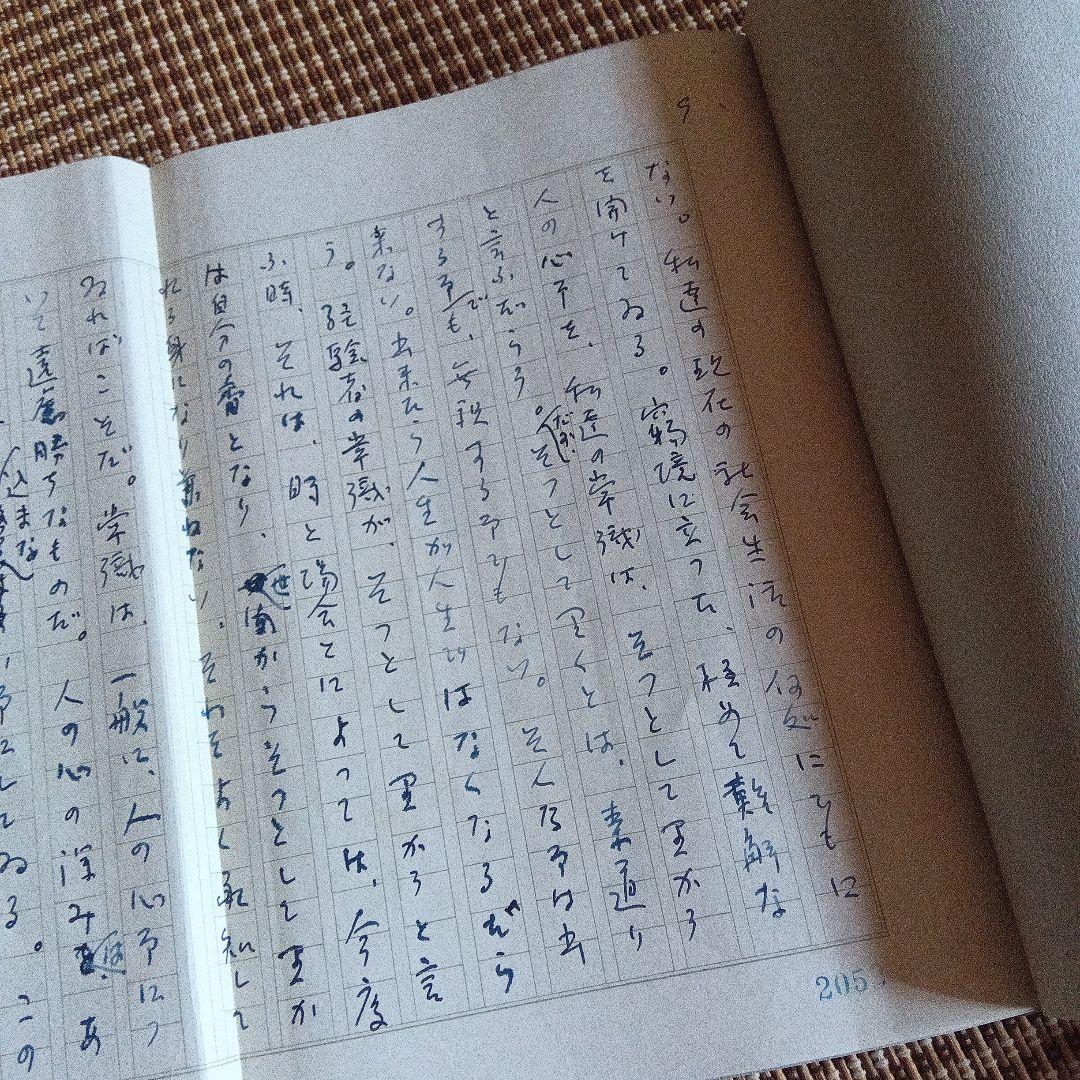 9
ない。私達の現在の社会生活の何処にでもに
を開けてゐる。窮境に立つて、極めて難解な
人の心事を、私達の常識は、そつとして置かう
と言ふだらう。そつとして置くとは、素通り
する事でも、無視する事でもない。そんな事は出
来ない。出来たら人生が人生ではなくなるだら
う。経験者の常識が、そつとして置かうと言
ふ時、それは、時と場合とによつては、今度
は自分の番となり、世間からそつとして置か
れる身になり兼ねない、それをよく承知して
ゐればこそだ。常識は、一般に、人の心事につ
いて遠慮勝ちなものだ。人の心の深みは、あ
この
205